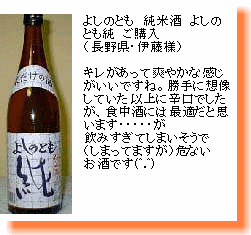 よしのとも 純米酒 よしの
とも純 ご購入
(長野県・伊藤様)
キレがあって爽やかな感じ
がいいですね。勝手に想像
していた以上に辛口でした
が、食中酒には最適だと思
います・・・・・が
飲みすぎてしまいそうで
(しまってますが)危ない
お酒です(^.^)
よしのとも
純